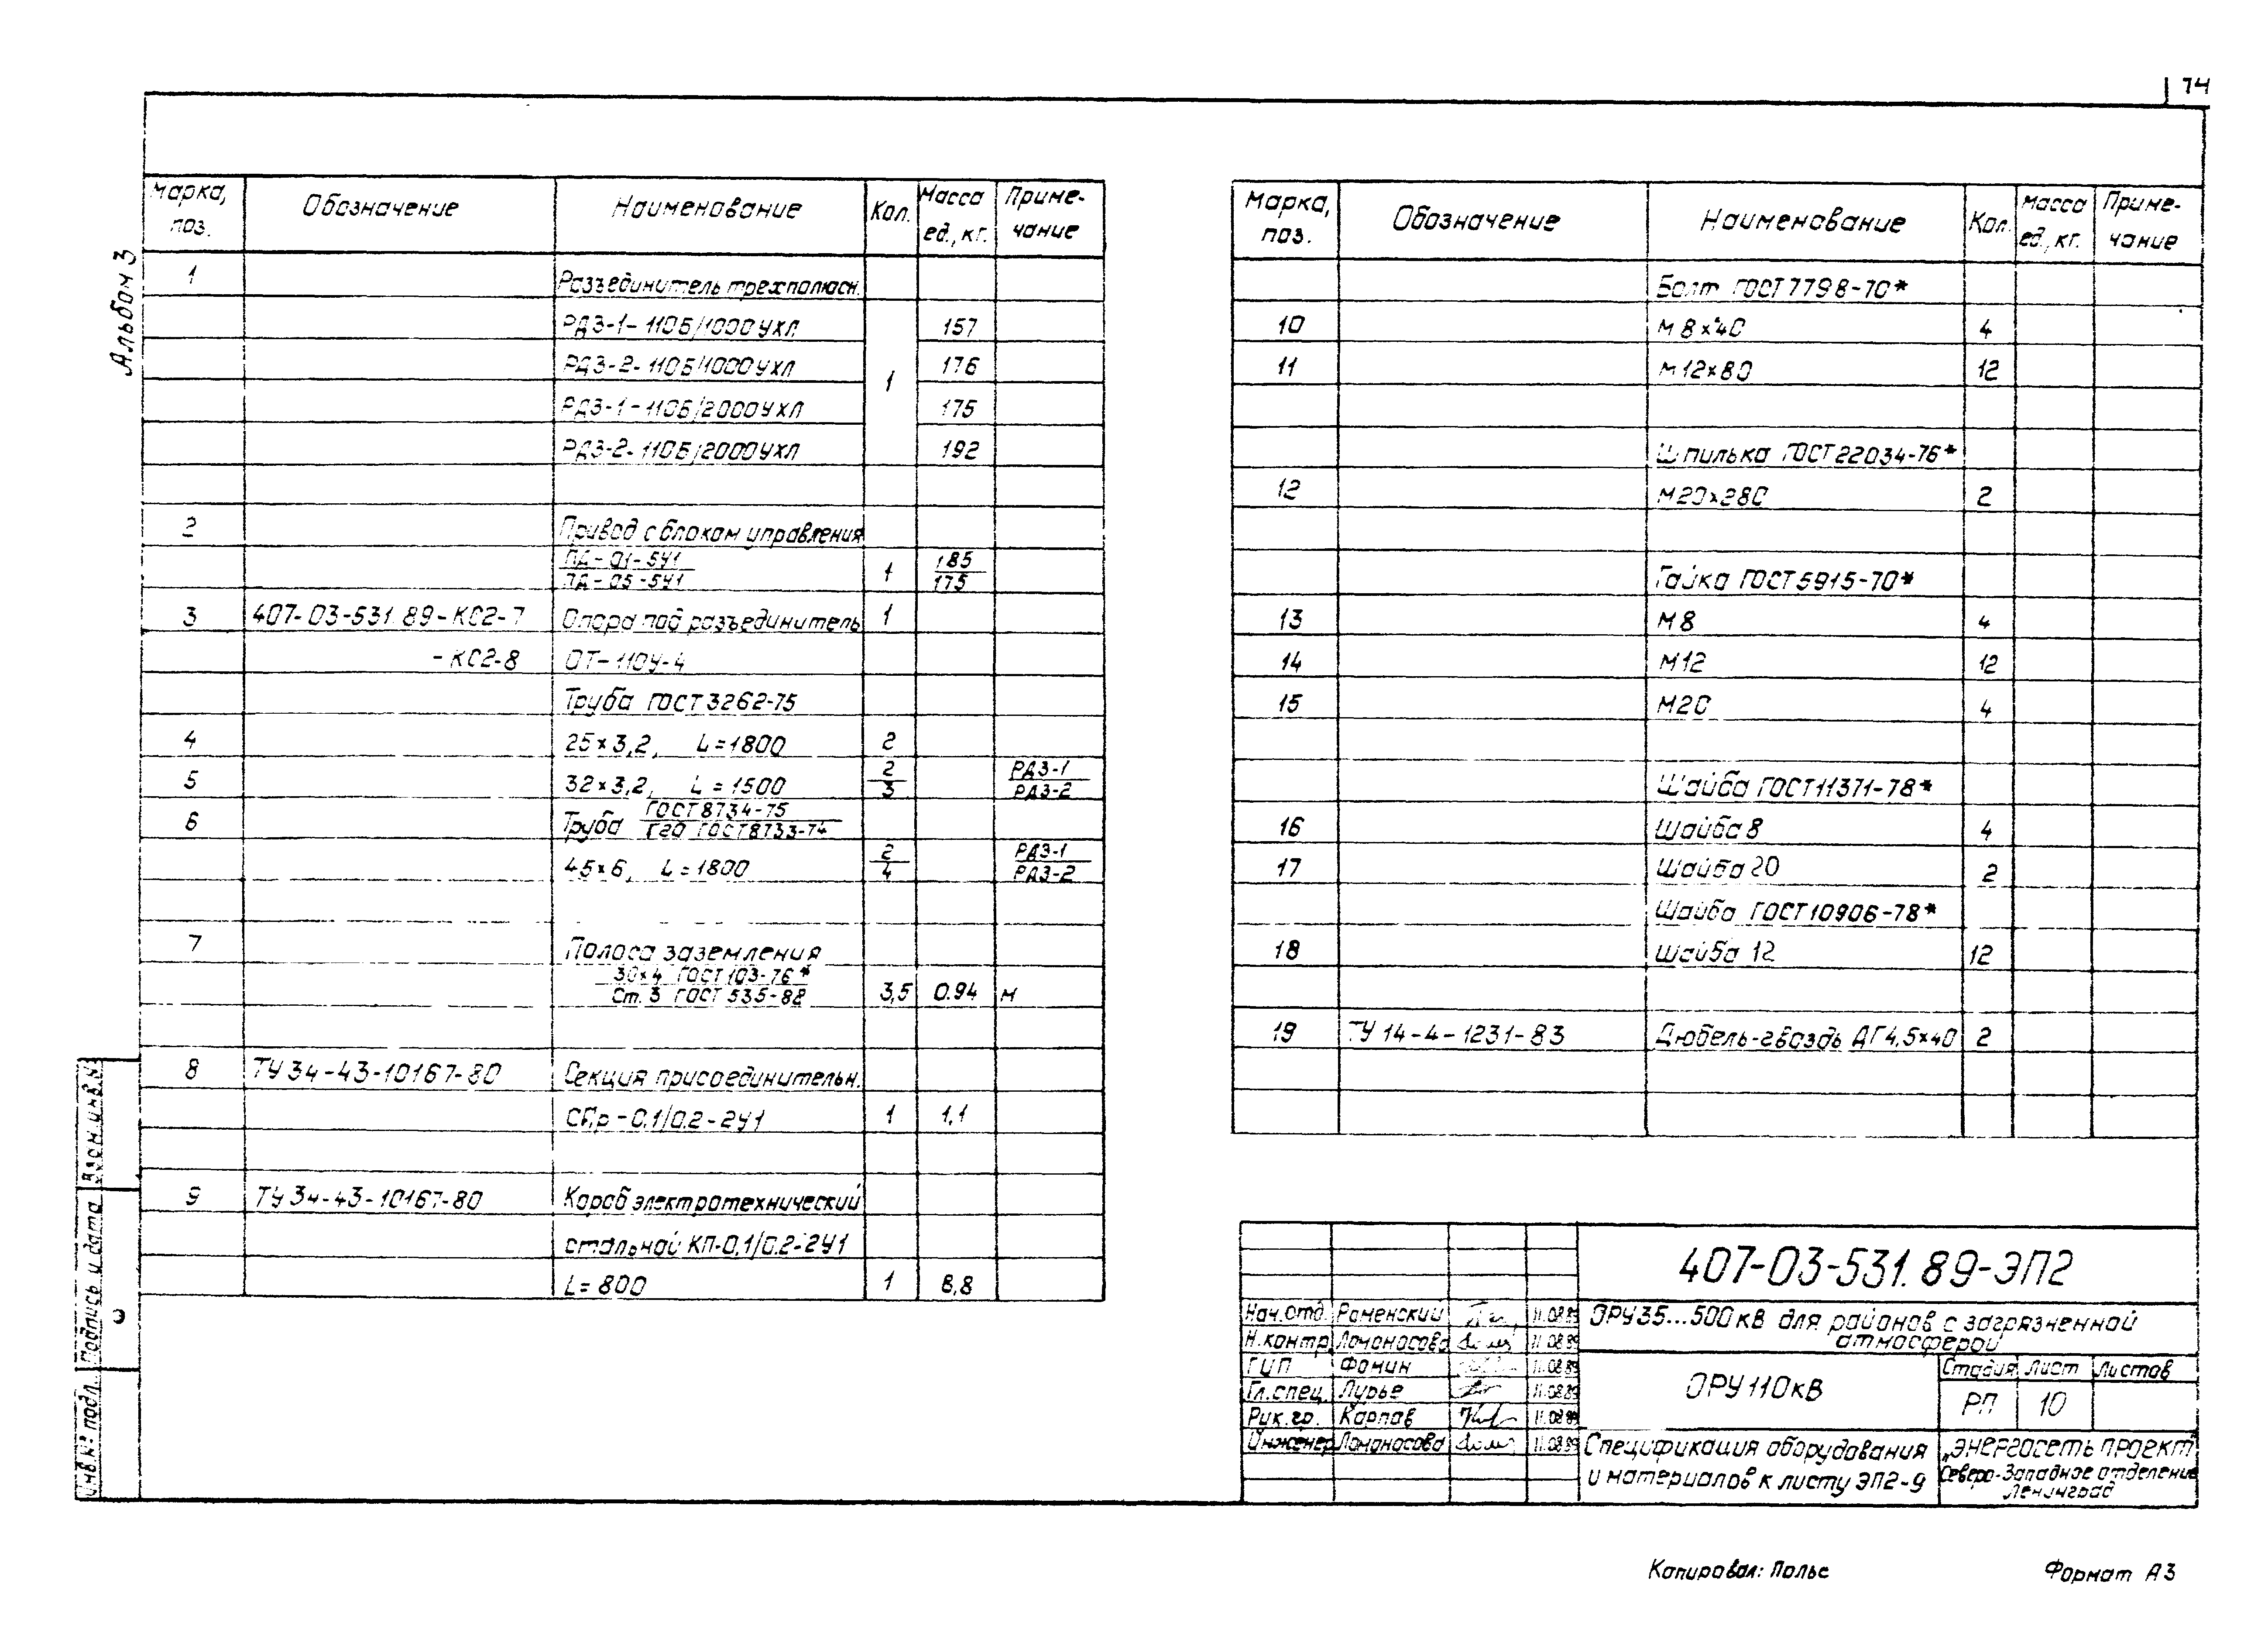 14
Альбом 3
Марка, поз. Обозначение Наименование Кол. Масса ед., кг. Приме-чание
1 Разъединитель трехполюсн.
РДЗ-1-110Б/1000УХЛ 157
РДЗ-2-110Б/1000УХЛ 1 176
РДЗ-1-110Б/2000УХЛ 175
РДЗ-2-110Б/2000УХЛ 192
2 Привод с блоком управления
ПД-01-5У1 185
ПД-05-5У1 1 175
3 407-03-531.89-КС2-7 Опора под разъединитель 1
-КС2-8 ОТ-110У-4
Труба ГОСТ 3262-75
4 25×3,2, L=1800 2
5 32×3,2, L=1500 2/3 РДЗ-1/РДЗ-2
6 Труба ГОСТ 8734-75 / ГОСТ 8733-74
45×6, L=1800 2/4 РДЗ-1/РДЗ-2
7 Полоса заземления
30×4 ГОСТ 103-76*
Ст. 3 ГОСТ 535-88 3,5 0.94 м
8 ТУ 34-43-10167-80 Секция присоединительн.
СПр-0.1/0.2-2У1 1 1,1
9 ТУ 34-43-10167-80 Короб электротехнический
стальной КП-0,1/0.2-2У1
L=800 1 8,8
Марка, поз. Обозначение Наименование Кол. Масса ед., кг. Приме-чание
Болт ГОСТ 7798-70*
10 М8×40 4
11 М12×80 12
Шпилька ГОСТ 22034-76*
12 М20×280 2
Гайка ГОСТ 5915-70*
13 М8 4
14 М12 12
15 М20 4
Шайба ГОСТ 11371-78*
16 Шайба 8 4
17 Шайба 20 2
Шайба ГОСТ 10906-78*
18 Шайба 12 12
19 ТУ 14-4-1231-83 Дюбель-гвоздь ДГ4,5×40 2
Взам. инв. №
Подпись и дата
Инв. № подл.
407-03-531.89-ЭП2
Нач. отд. Роменский 11.08.89
Н. контр. Ломоносова 11.08.89
ГИП Фомин 11.08.89
Гл. спец. Лурье 11.08.89
Рук. гр. Карпов 11.08.89
Инженер Ломоносова 11.08.89
ОРУ 35...500 кВ для районов с загрязненной
атмосферой
ОРУ 110 кВ
Стадия Лист Листов
РП 10
Спецификация оборудования
и материалов к листу ЭП2-9
„Энергосетьпроект"
Северо-Западное отделение
Ленинград
Копировал: Полье
Формат А3